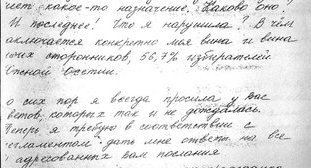 какое-то назначение. Каково оно?
И последнее! Что я нарушила? В чём
аключается конкретно моя вина и вина
оих сторонников, 56,7% избирателей
жной Осетии.
о сих пор я всегда просила у вас
ветов, которых так и не дождалась.
еперь я требую в соответствии с
егламентом дать мне ответы на все
адресованных вам послания